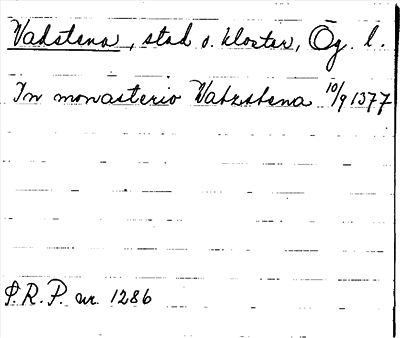 Vadstena, stad o. kloster, Ög. l.
In monasterio Watzstena 10/9 1377
P.R.P. nr. 1286